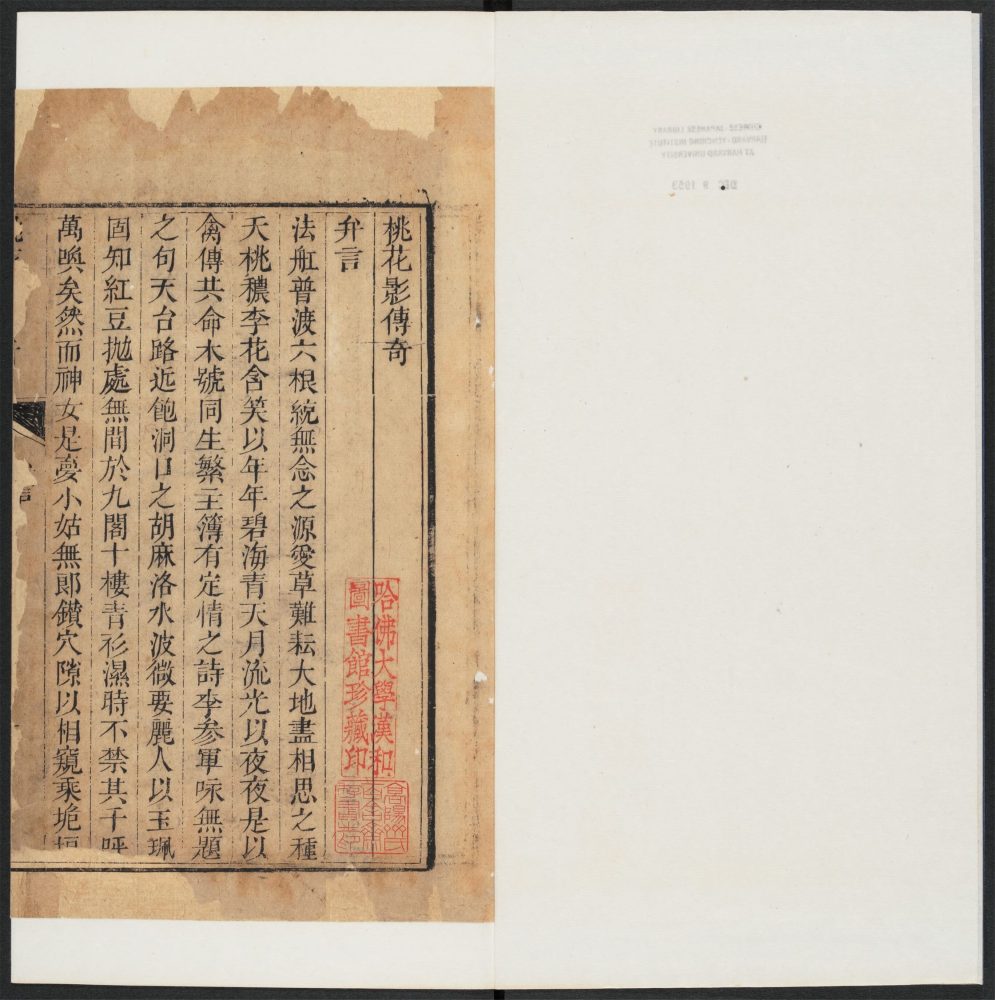 桃花影傳奇
弁言
法舩普渡六根統無念之源愛草難耘大地盡相思之種
天桃穠李花含笑以年年碧海青天月流光以夜夜是以
禽傳共命木號同生繁主簿有定情之詩李参軍咏無題
之句天台路近飽洞口之胡麻洛水波微要麗人以玉珮
固知紅豆抛處無間於九閣十樓青衫濕時不禁其千呼
萬喚矣然而神女是夢小姑無郎鑚穴隙以相窺乘垝垣
言
哈佛大學漢和
圖書館珍藏印
CHINESE-JAPANESE LIBRARY
HARVARD-YENCHING INSTITUTE
AT HARVARD UNIVERSITY
DEC 9 1953